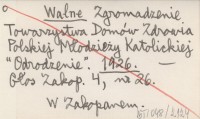 Walne Zgromadzenie
Towarzystwa Domów Zdrowia
Polskiej Młodzieży Katolickiej
"Odrodzenie". 1926. —
Głos Zakop. 4, nr 26.
W Zakopanem.